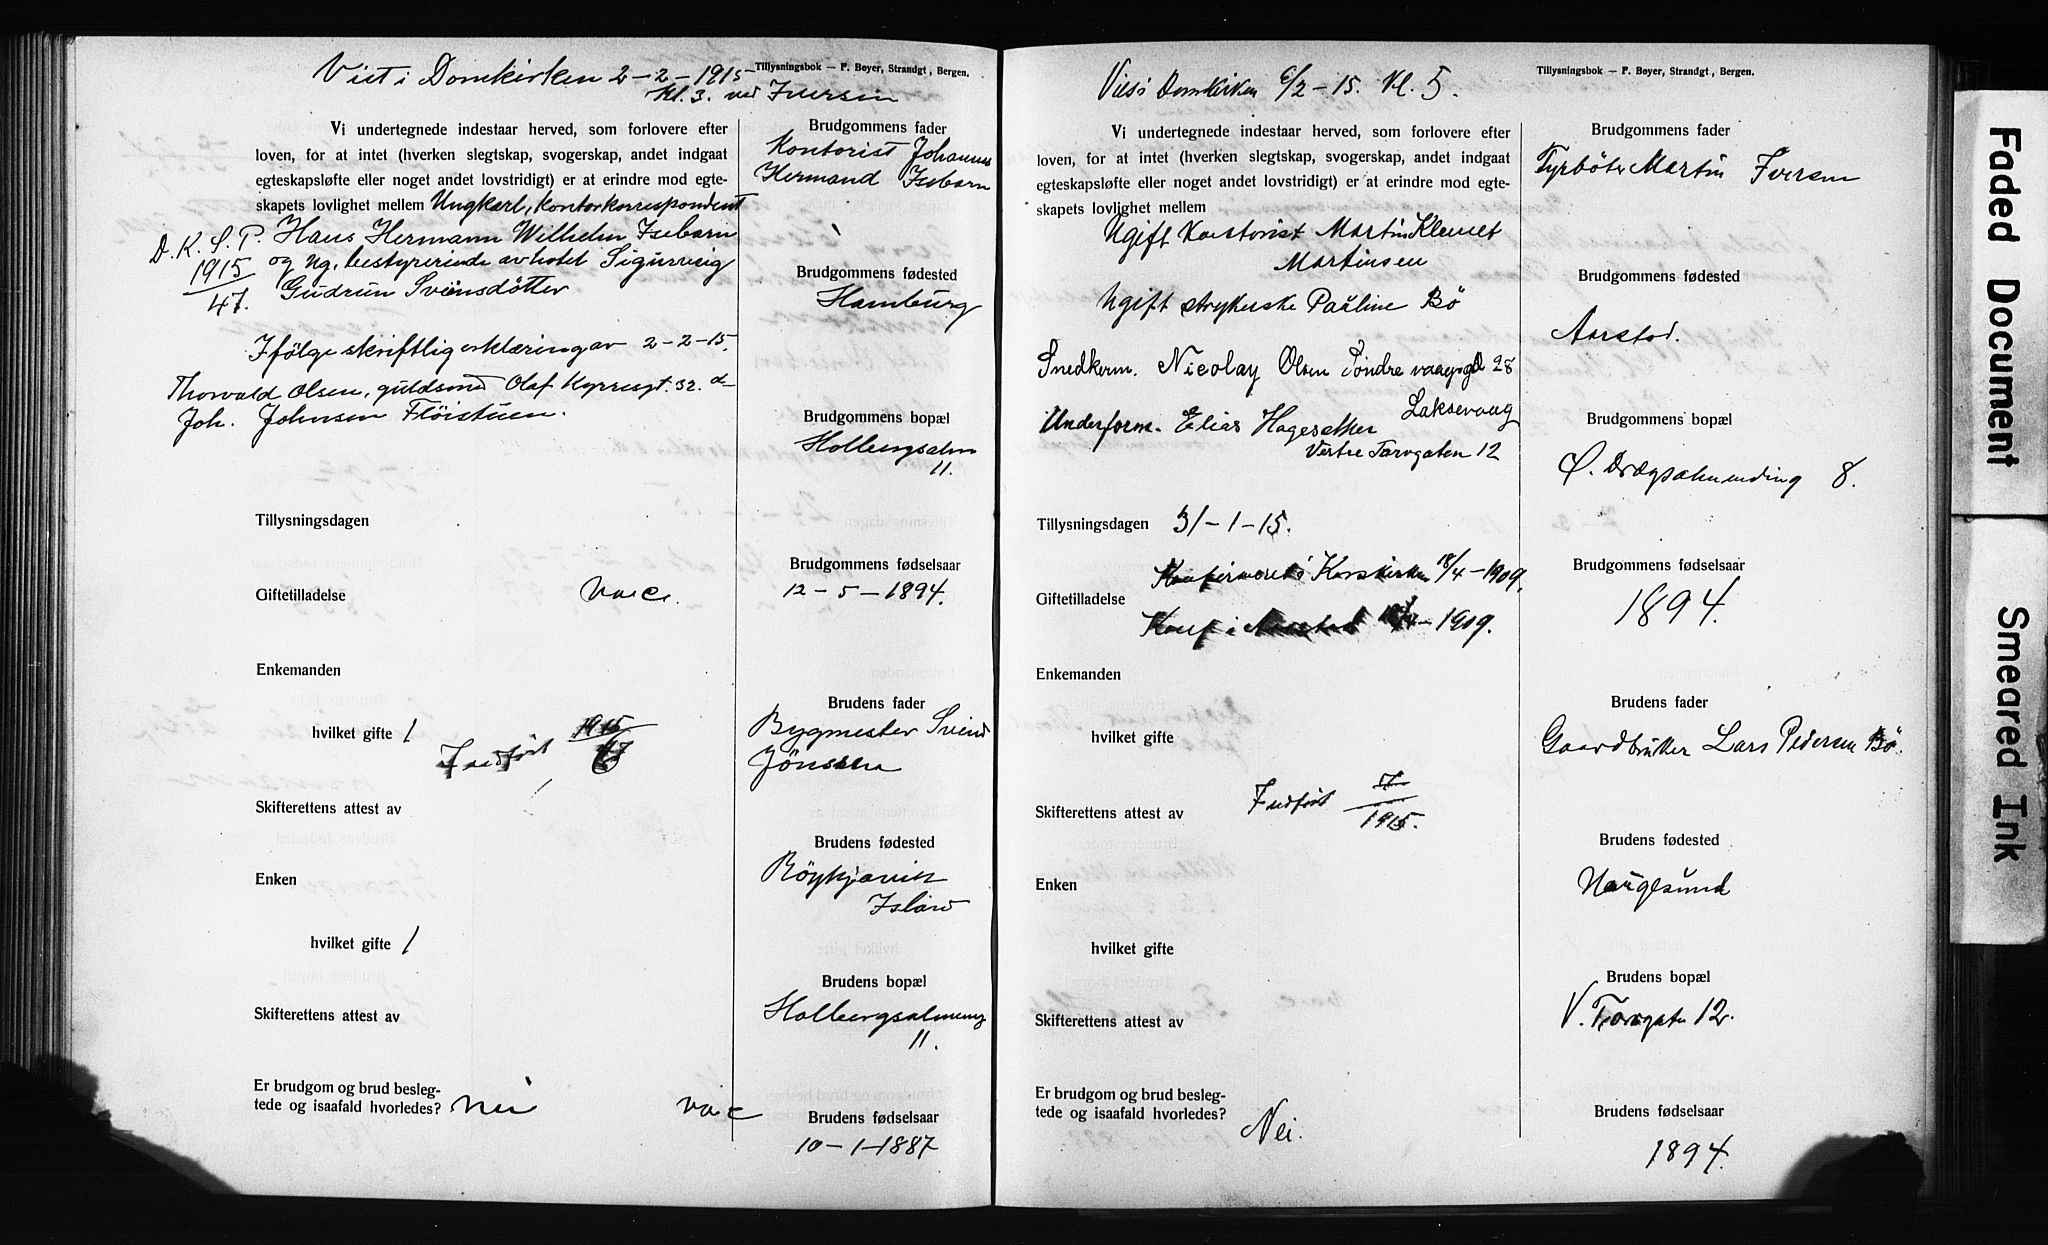 Viet i Domkirken 2-2-1915
Kl. 3. ved Iversen
Tillysningsbok — F. Bøyer, Strandgt, Bergen.
Vi undertegnede indestaar herved, som forlovere efter
loven, for at intet (hverken slegtskap, svogerskap, andet indgaat
egteskapsløfte eller noget andet lovstridigt) er at erindre mod egte-
skapets lovlighet mellem Ungkarl, kontorkorrespondent
D. K. S. P. Hans Hermann Wilhelm Isebarn
1915 og Ug. bestyrerinde av hotel Sigurveig
47. Gudrun Sveinsdötter
Ifölge skriftlig erklæring av 2-2-15.
Thorvald Olsen, guldsmed Olaf Kyrresgt. 32. d
Joh. Johnsen Flöistuen.
Tillysningsdagen
Giftetilladelse
Enkemanden
hvilket gifte 1
Indført 1915
47
Skifterettens attest av
Enken
hvilket gifte 1
Skifterettens attest av
Er brudgom og brud besleg-
tede og isaafald hvorledes? Nei
Brudgommens fader
Kontorist Johannes
Hermand Isebarn
Brudgommens fødested
Hamburg
Brudgommens bopæl
Holbergsalm
11.
Brudgommens fødselsaar
12-5-1894.
Brudens fader
Bygmester Svend
Jönssen
Brudens fødested
Röykjavik
Island
Brudens bopæl
Holbergsalmeng
11.
Brudens fødselsaar
10-1-1887
Viet i Domkirken 6/2-15. Kl. 5.
Tillysningsbok — F. Bøyer, Strandgt, Bergen.
Vi undertegnede indestaar herved, som forlovere efter
loven, for at intet (hverken slegtskap, svogerskap, andet indgaat
egteskapsløfte eller noget andet lovstridigt) er at erindre mod egte-
skapets lovlighet mellem
Ugift Kontorist Martin Klemet
Martinsen
Ugift strykerske Pauline Bö
Snedkerm. Nicolay Olsen Söndre vaagsgd 28
Laksevaag
Underform. Elias Hagesæther
Vestre Torvgaten 12
Tillysningsdagen 31-1-15.
Konfirmeret i Korskirken 18/4-1909.
Giftetilladelse
Konf i Aarstad 1909.
Enkemanden
hvilket gifte
Skifterettens attest av Indført 7
1915.
Enken
hvilket gifte
Skifterettens attest av
Er brudgom og brud besleg-
tede og isaafald hvorledes? Nei.
Brudgommens fader
Fyrböter Martin Iversen
Brudgommens fødested
Aarstad.
Brudgommens bopæl
Ö. Drægsalmending 8.
Brudgommens fødselsaar
1894.
Brudens fader
Gaardbruker Lars Pedersen Bö.
Brudens fødested
Haugesund
Brudens bopæl
V. Torvgaten 12.
Brudens fødselsaar
1894.
Faded Document
Smeared Ink